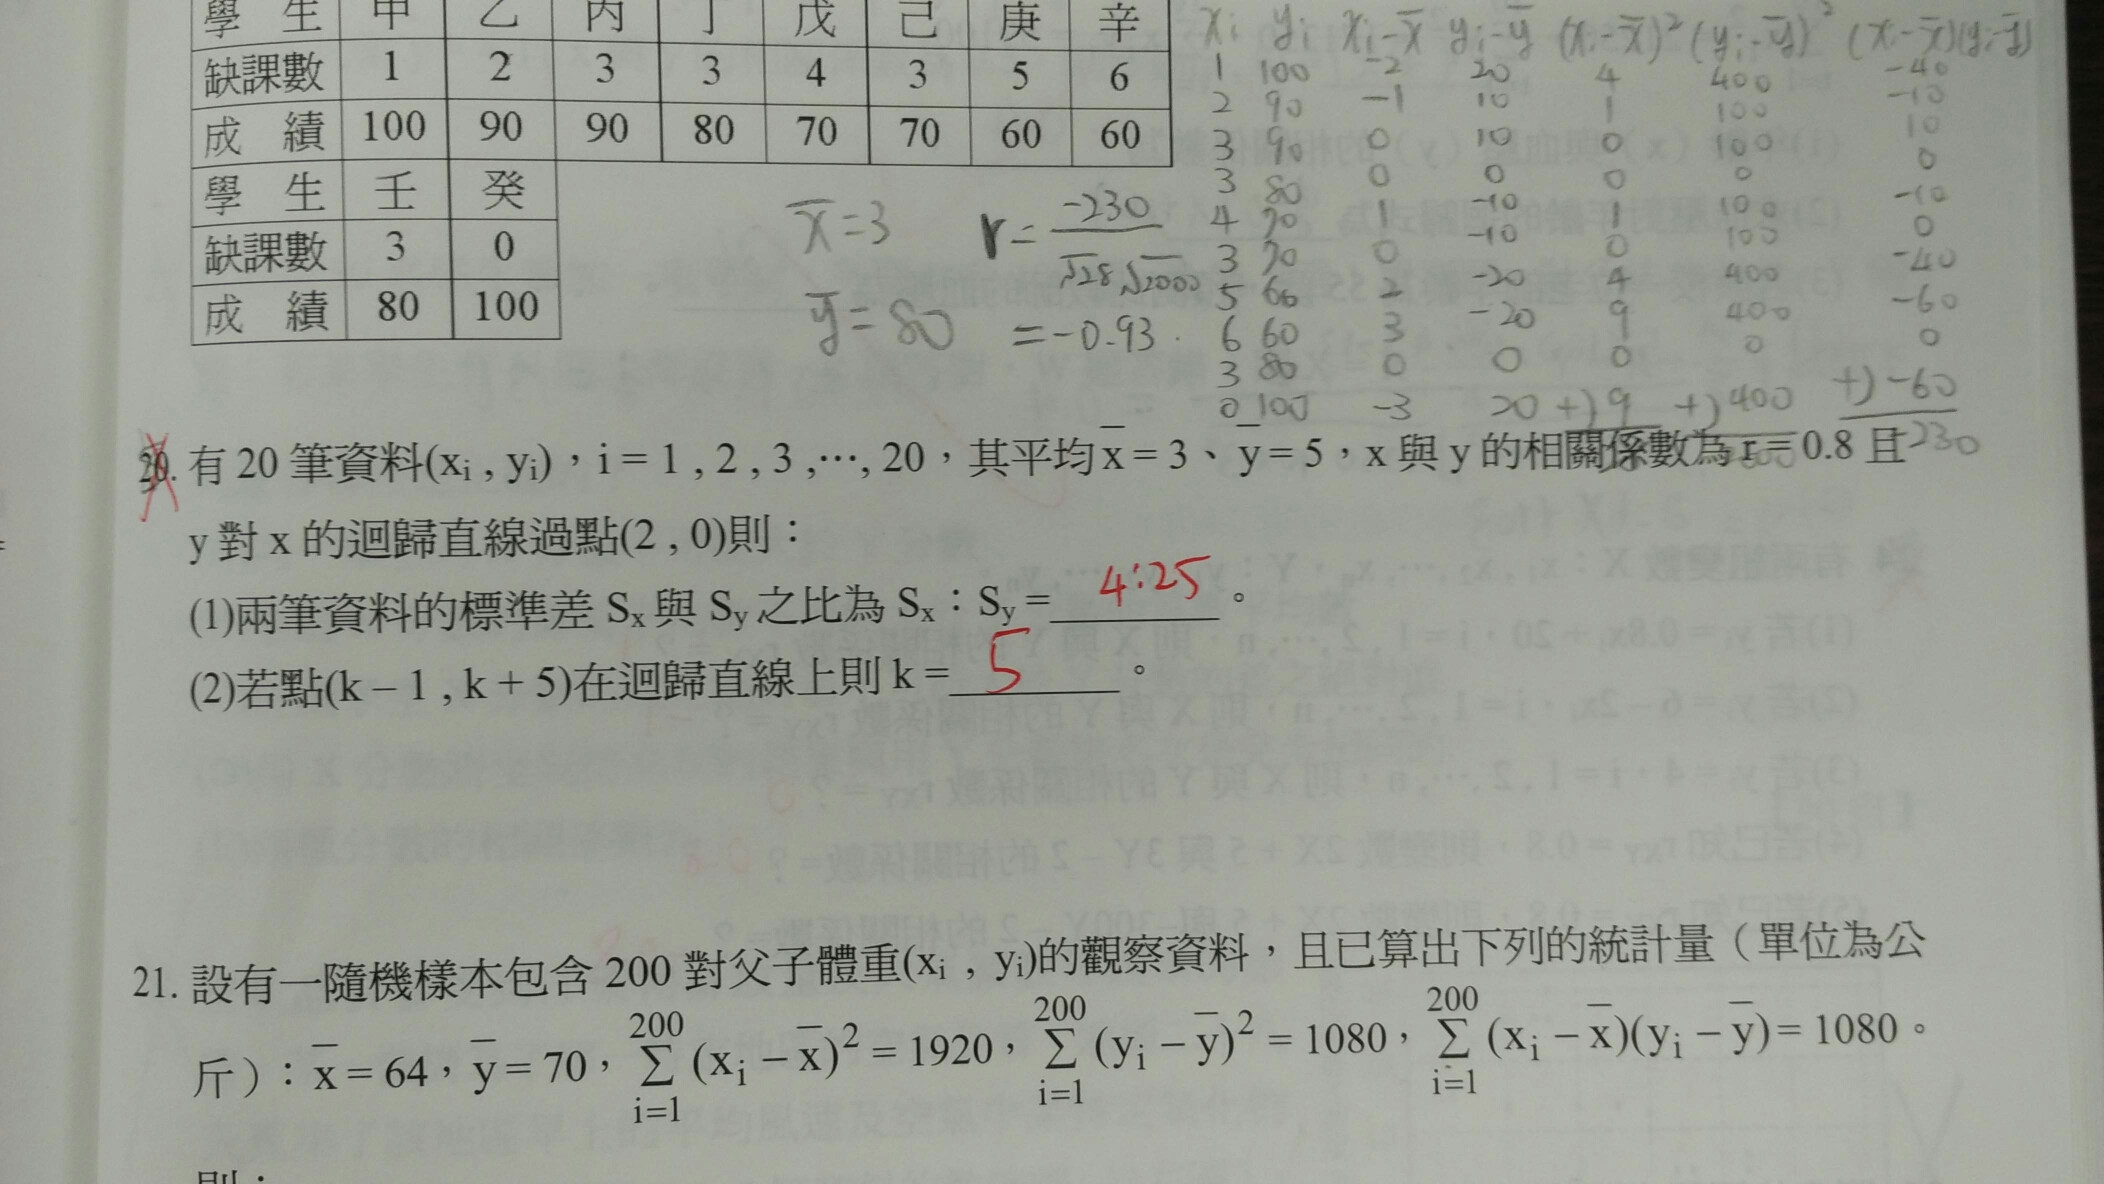 學 生 甲 乙 丙 丁 戊 己 庚 辛
缺課數 1 2 3 3 4 3 5 6
成 績 100 90 90 80 70 70 60 60
學 生 壬 癸
缺課數 3 0
成 績 80 100
x̄=3
ȳ=80
r= -230 / √28 √2000
=-0.93
xi yi xi-x̄ yi-ȳ (xi-x̄)² (yi-ȳ)² (xi-x̄)(yi-ȳ)
1 100 -2 20 4 400 -40
2 90 -1 10 1 100 -10
3 90 0 10 0 100 10
3 80 0 0 0 0 0
4 70 1 -10 1 100 -10
3 70 0 -10 0 100 0
5 60 2 -20 4 400 -40
6 60 3 -20 9 400 -60
3 80 0 0 0 0 0
0 100 -3 20 +)9 +)400 +)-60
230
20. 有 20 筆資料(xi , yi)，i = 1 , 2 , 3 ,…, 20，其平均 x̄ = 3、ȳ = 5，x 與 y 的相關係數為 r = 0.8 且
y 對 x 的迴歸直線過點(2 , 0)則：
(1)兩筆資料的標準差 Sx 與 Sy 之比為 Sx：Sy = 4:25 。
(2)若點(k – 1 , k + 5)在迴歸直線上則 k = 5 。
21. 設有一隨機樣本包含 200 對父子體重(xi , yi)的觀察資料，且已算出下列的統計量（單位為公
斤）：x̄ = 64，ȳ = 70，∑_{i=1}^{200} (xi – x̄)² = 1920，∑_{i=1}^{200} (yi – ȳ)² = 1080，∑_{i=1}^{200} (xi – x̄)(yi – ȳ) = 1080。
則：